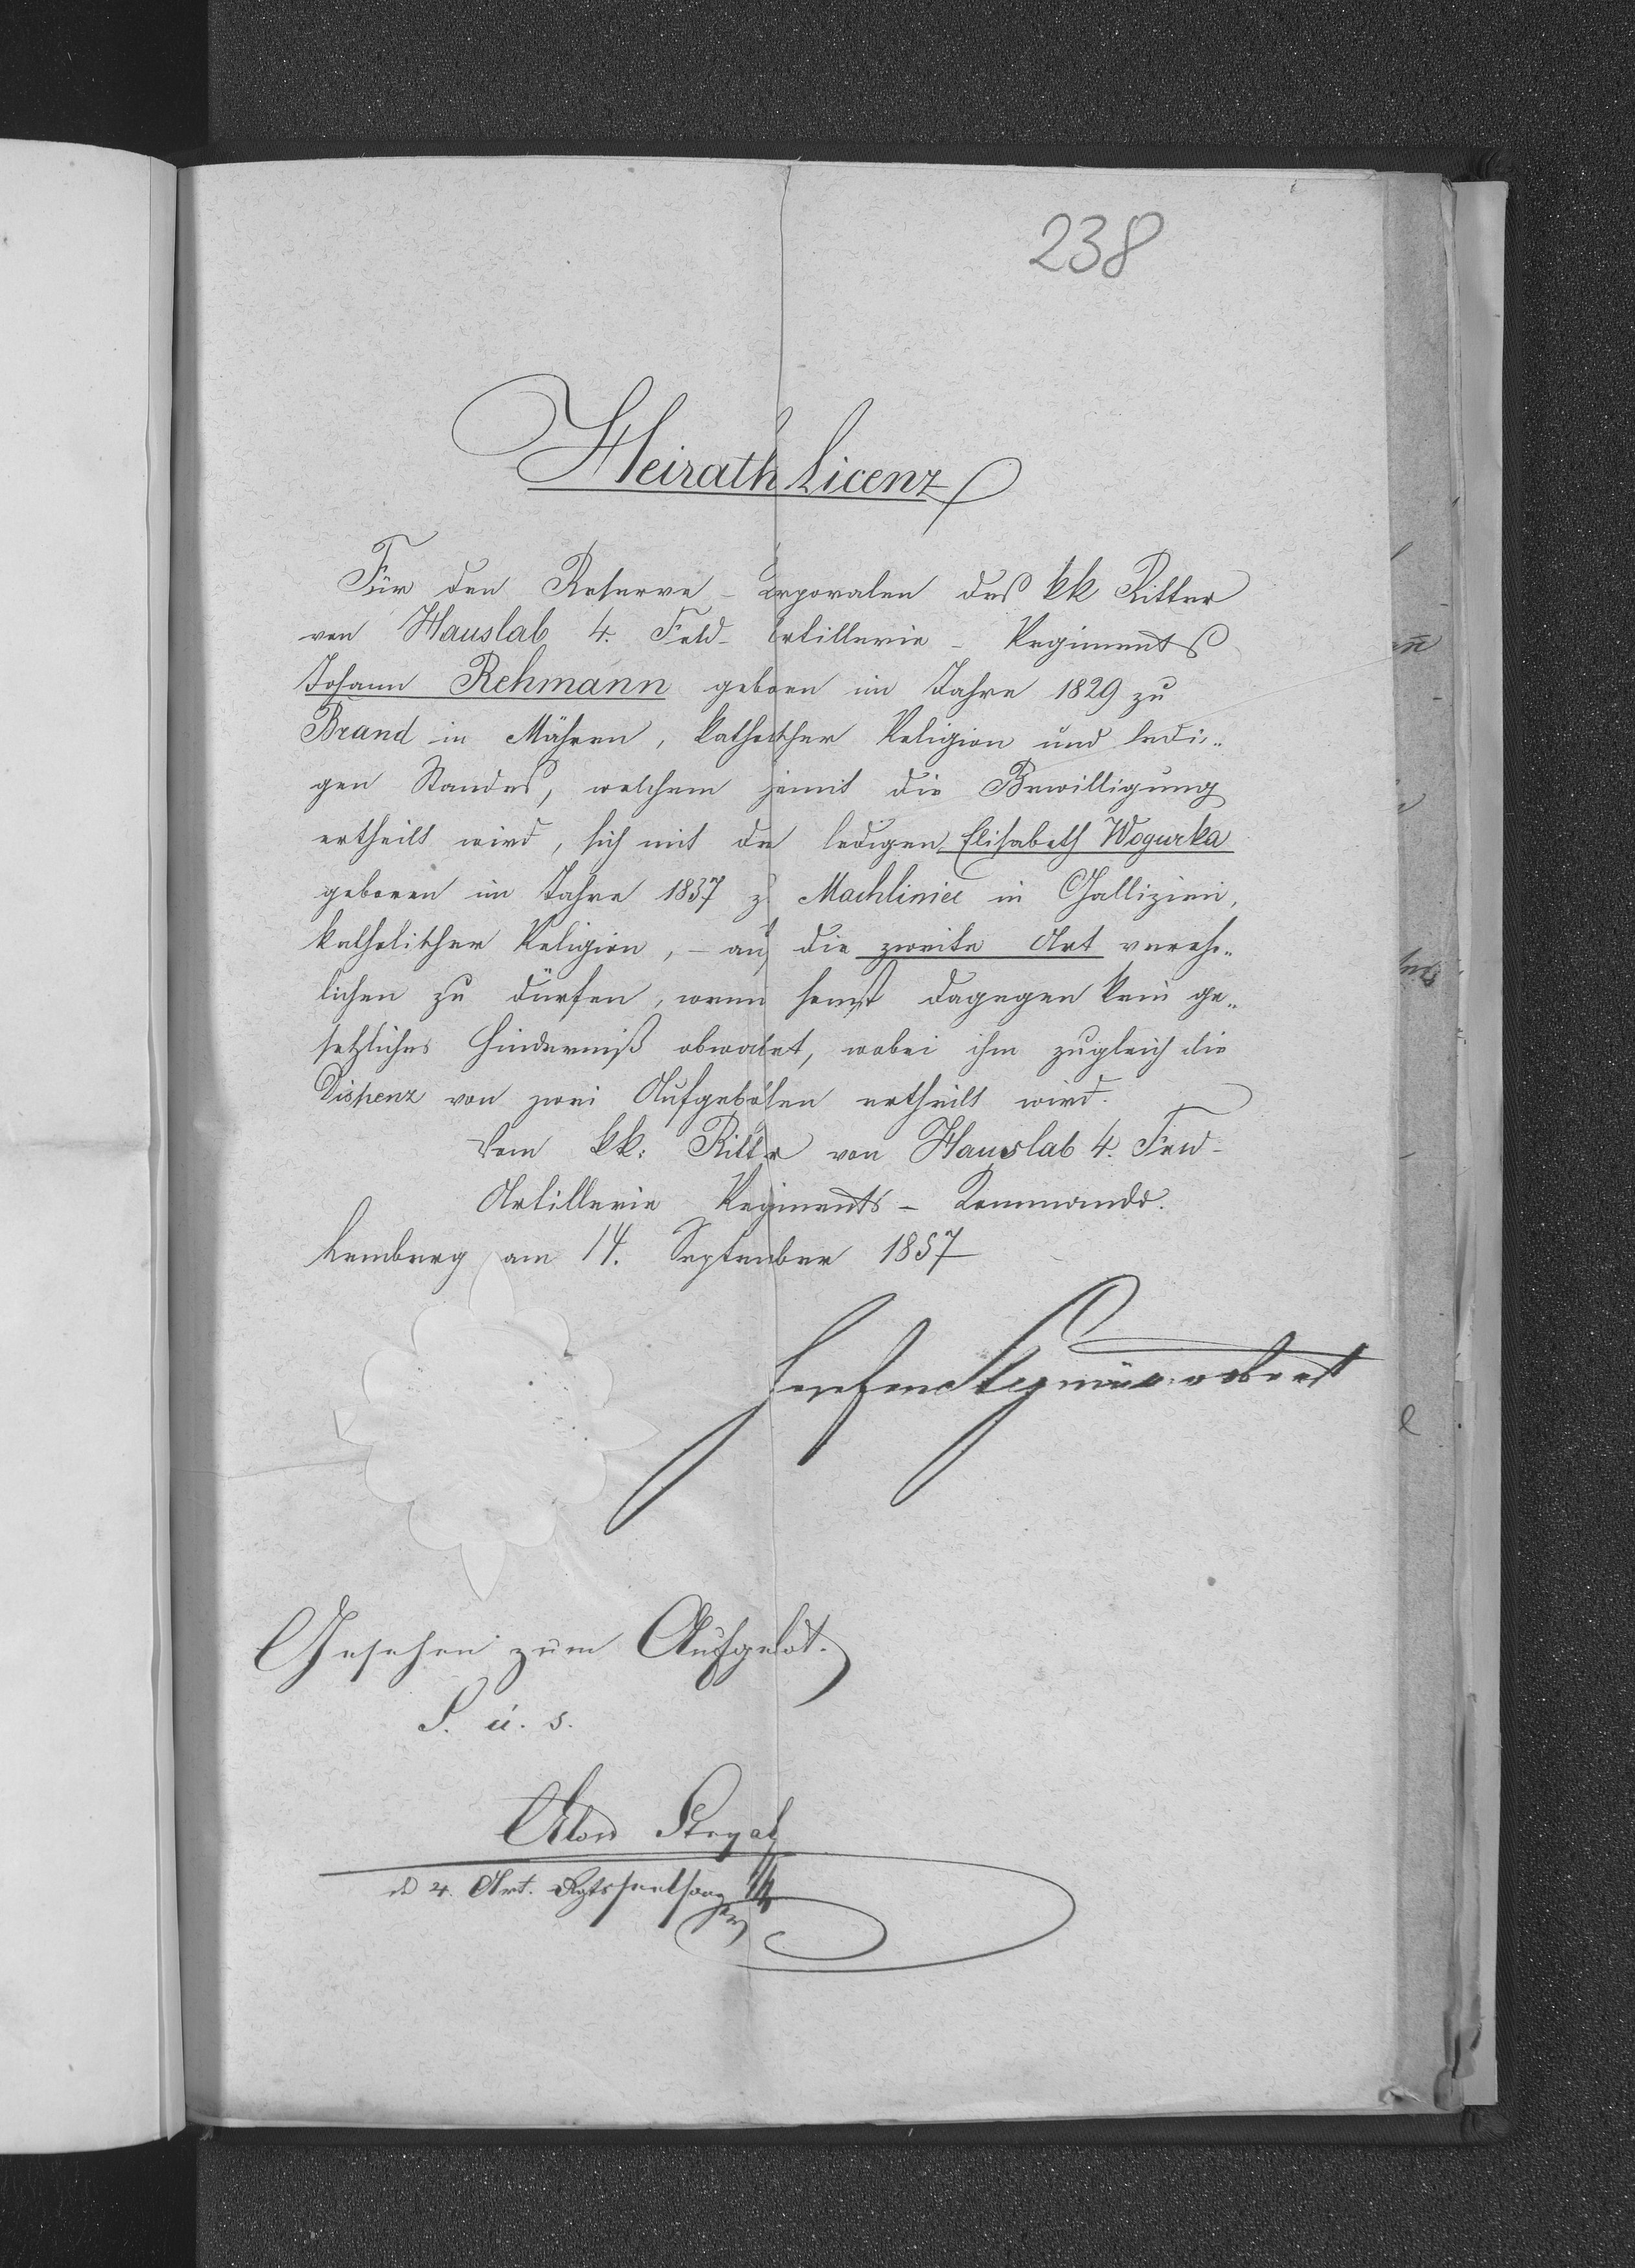 238
Heirath Licenz
Für den Reserve-Corporalen des kk Ritter
von Hauslab 4. Feld-Artillerie-Regiments
Johann Rehmann geboren im Jahre 1829 zu
Brand in Mähren, katholischer Religion und ledi-
gen Standes, welchem hiemit die Bewilligung
ertheilt wird, sich mit der ledigen Elisabeth Wogurka
geboren im Jahre 1837 zu Machliniec in Gallizien,
katholischer Religion, – auf die zweite Art vereh-
lichen zu dürfen, wenn sonst dagegen kein ge-
setzliches Hinderniß obwaltet, wobei ihm zugleich die
Dispenz von zwei Aufgeboten ertheilt wird.
Vom kk. Ritter von Hauslab 4. Feld-
Artillerie Regiments-Kommando.
Lemberg am 14. September 1857
Gesehen zum Aufgebot.
S. u. s.
4. Art. Rgtsseelsorger